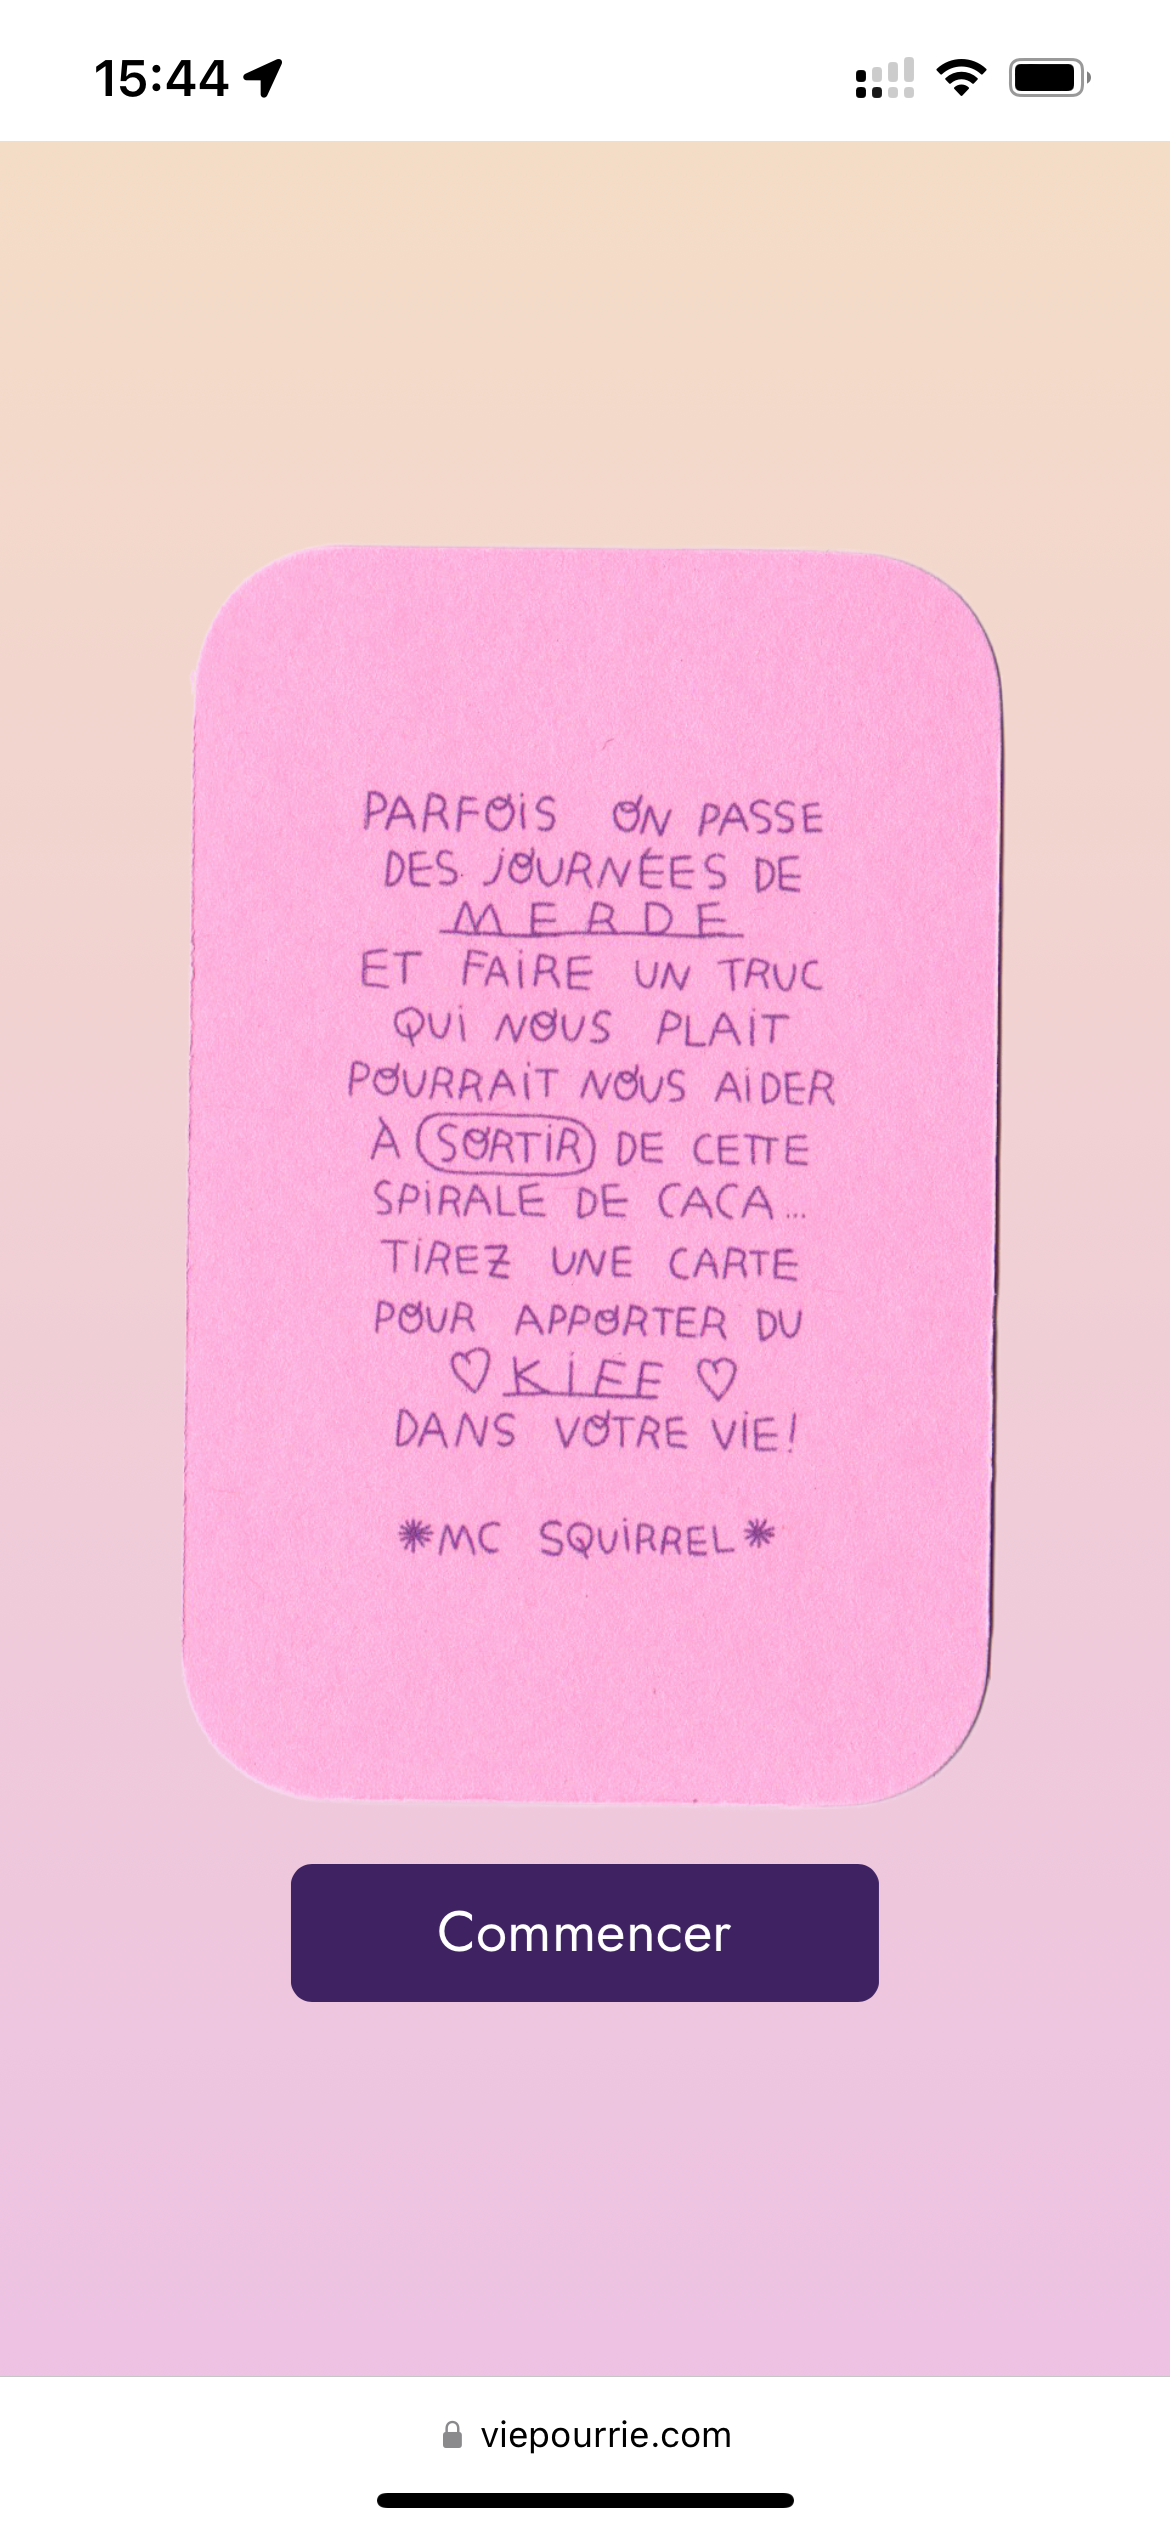 15:44
PARFOiS ON PASSE
DES JOURNÉES DE
MERDE
ET FAiRE UN TRUC
QUi NOUS PLAiT
POURRAiT NOUS AiDER
À SORTiR DE CETTE
SPiRALE DE CACA...
TiREZ UNE CARTE
POUR APPORTER DU
♡ KiFF ♡
DANS VOTRE ViE!
*MC SQUiRREL*
Commencer
viepourrie.com